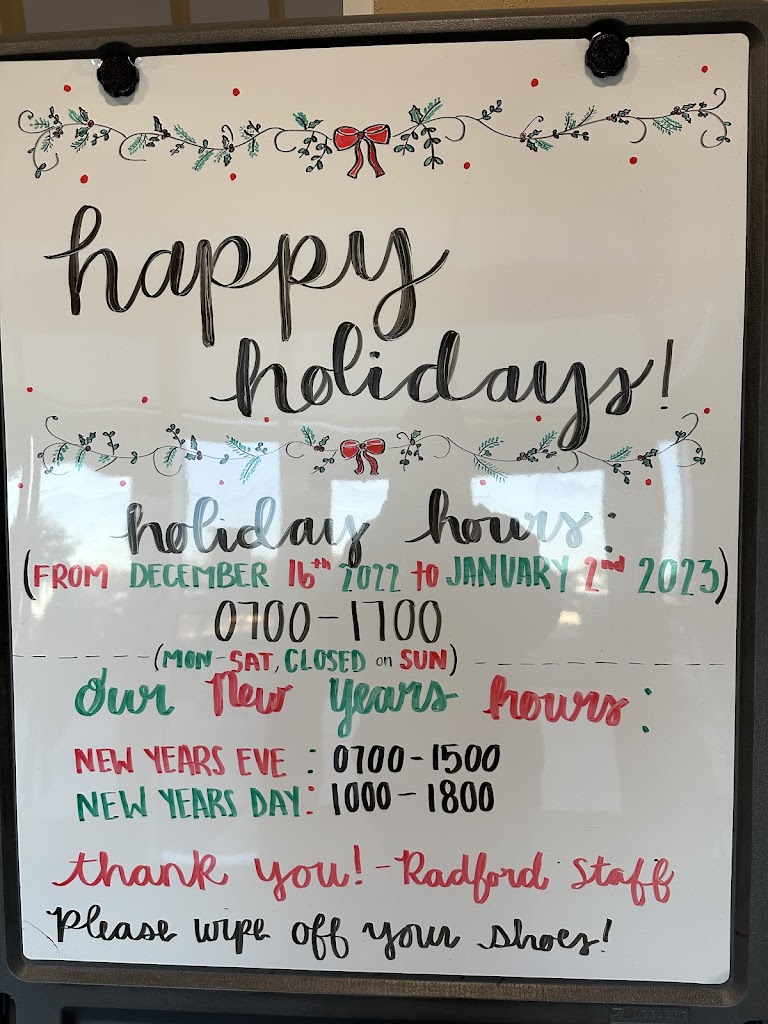 happy
holidays!
holiday hours:
(FROM DECEMBER 16th 2022 to JANUARY 2nd 2023)
0700-1700
(MON-SAT, CLOSED on SUN)
Our New Years hours:
NEW YEARS EVE : 0700-1500
NEW YEARS DAY: 1000-1800
thank you! -Radford Staff
Please wipe off your shoes!